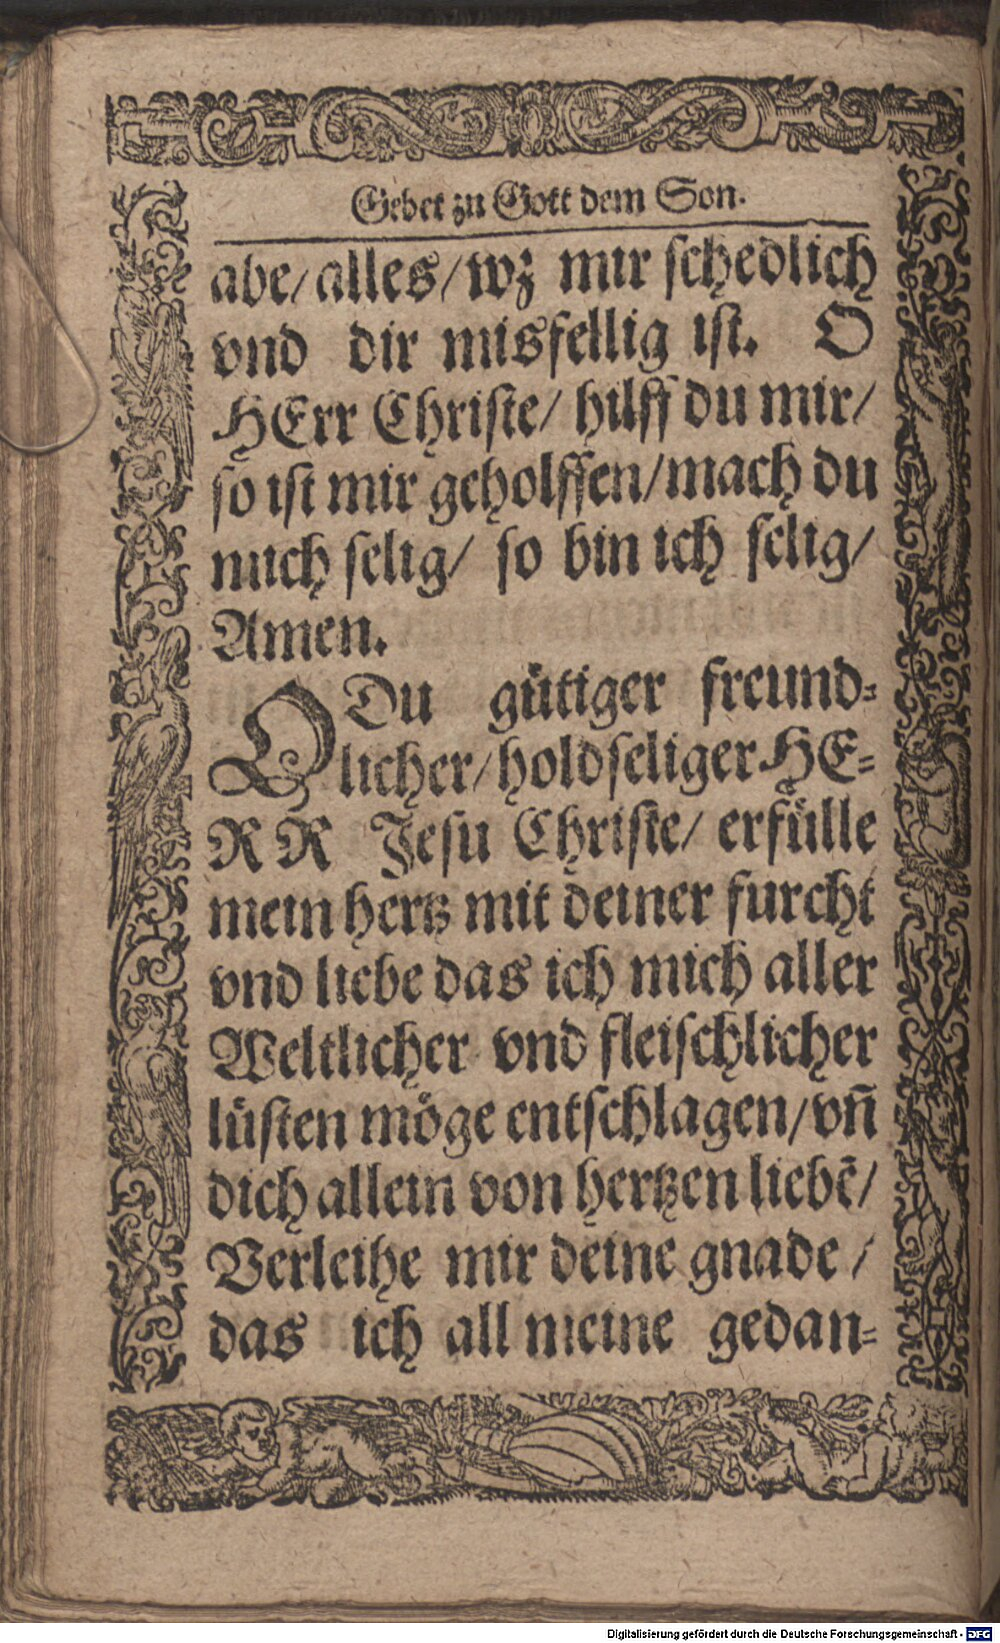 Gebet zu Gott dem Son.
abe/ alles/ wz mir schedlich
vnd dir misfellig ist. O
HErr Christe/ hilff du mir/
so ist mir geholffen/ mach du
mich selig/ so bin ich selig/
Amen.
O Du gütiger freund-
licher/ holdseliger HE-
RR Jesu Christe/ erfülle
mein hertz mit deiner furcht
vnd liebe das ich mich aller
Weltlicher vnd fleischlicher
lüsten möge entschlagen/ vñ
dich allein von hertzen liebẽ/
Verleihe mir deine gnade/
das ich all meine gedan-
Digitalisierung gefördert durch die Deutsche Forschungsgemeinschaft - DFG